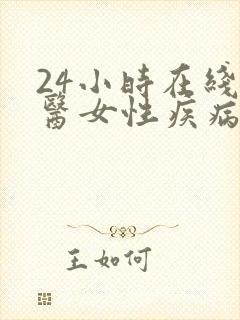 24小時在綫
醫女性疾病
王如何